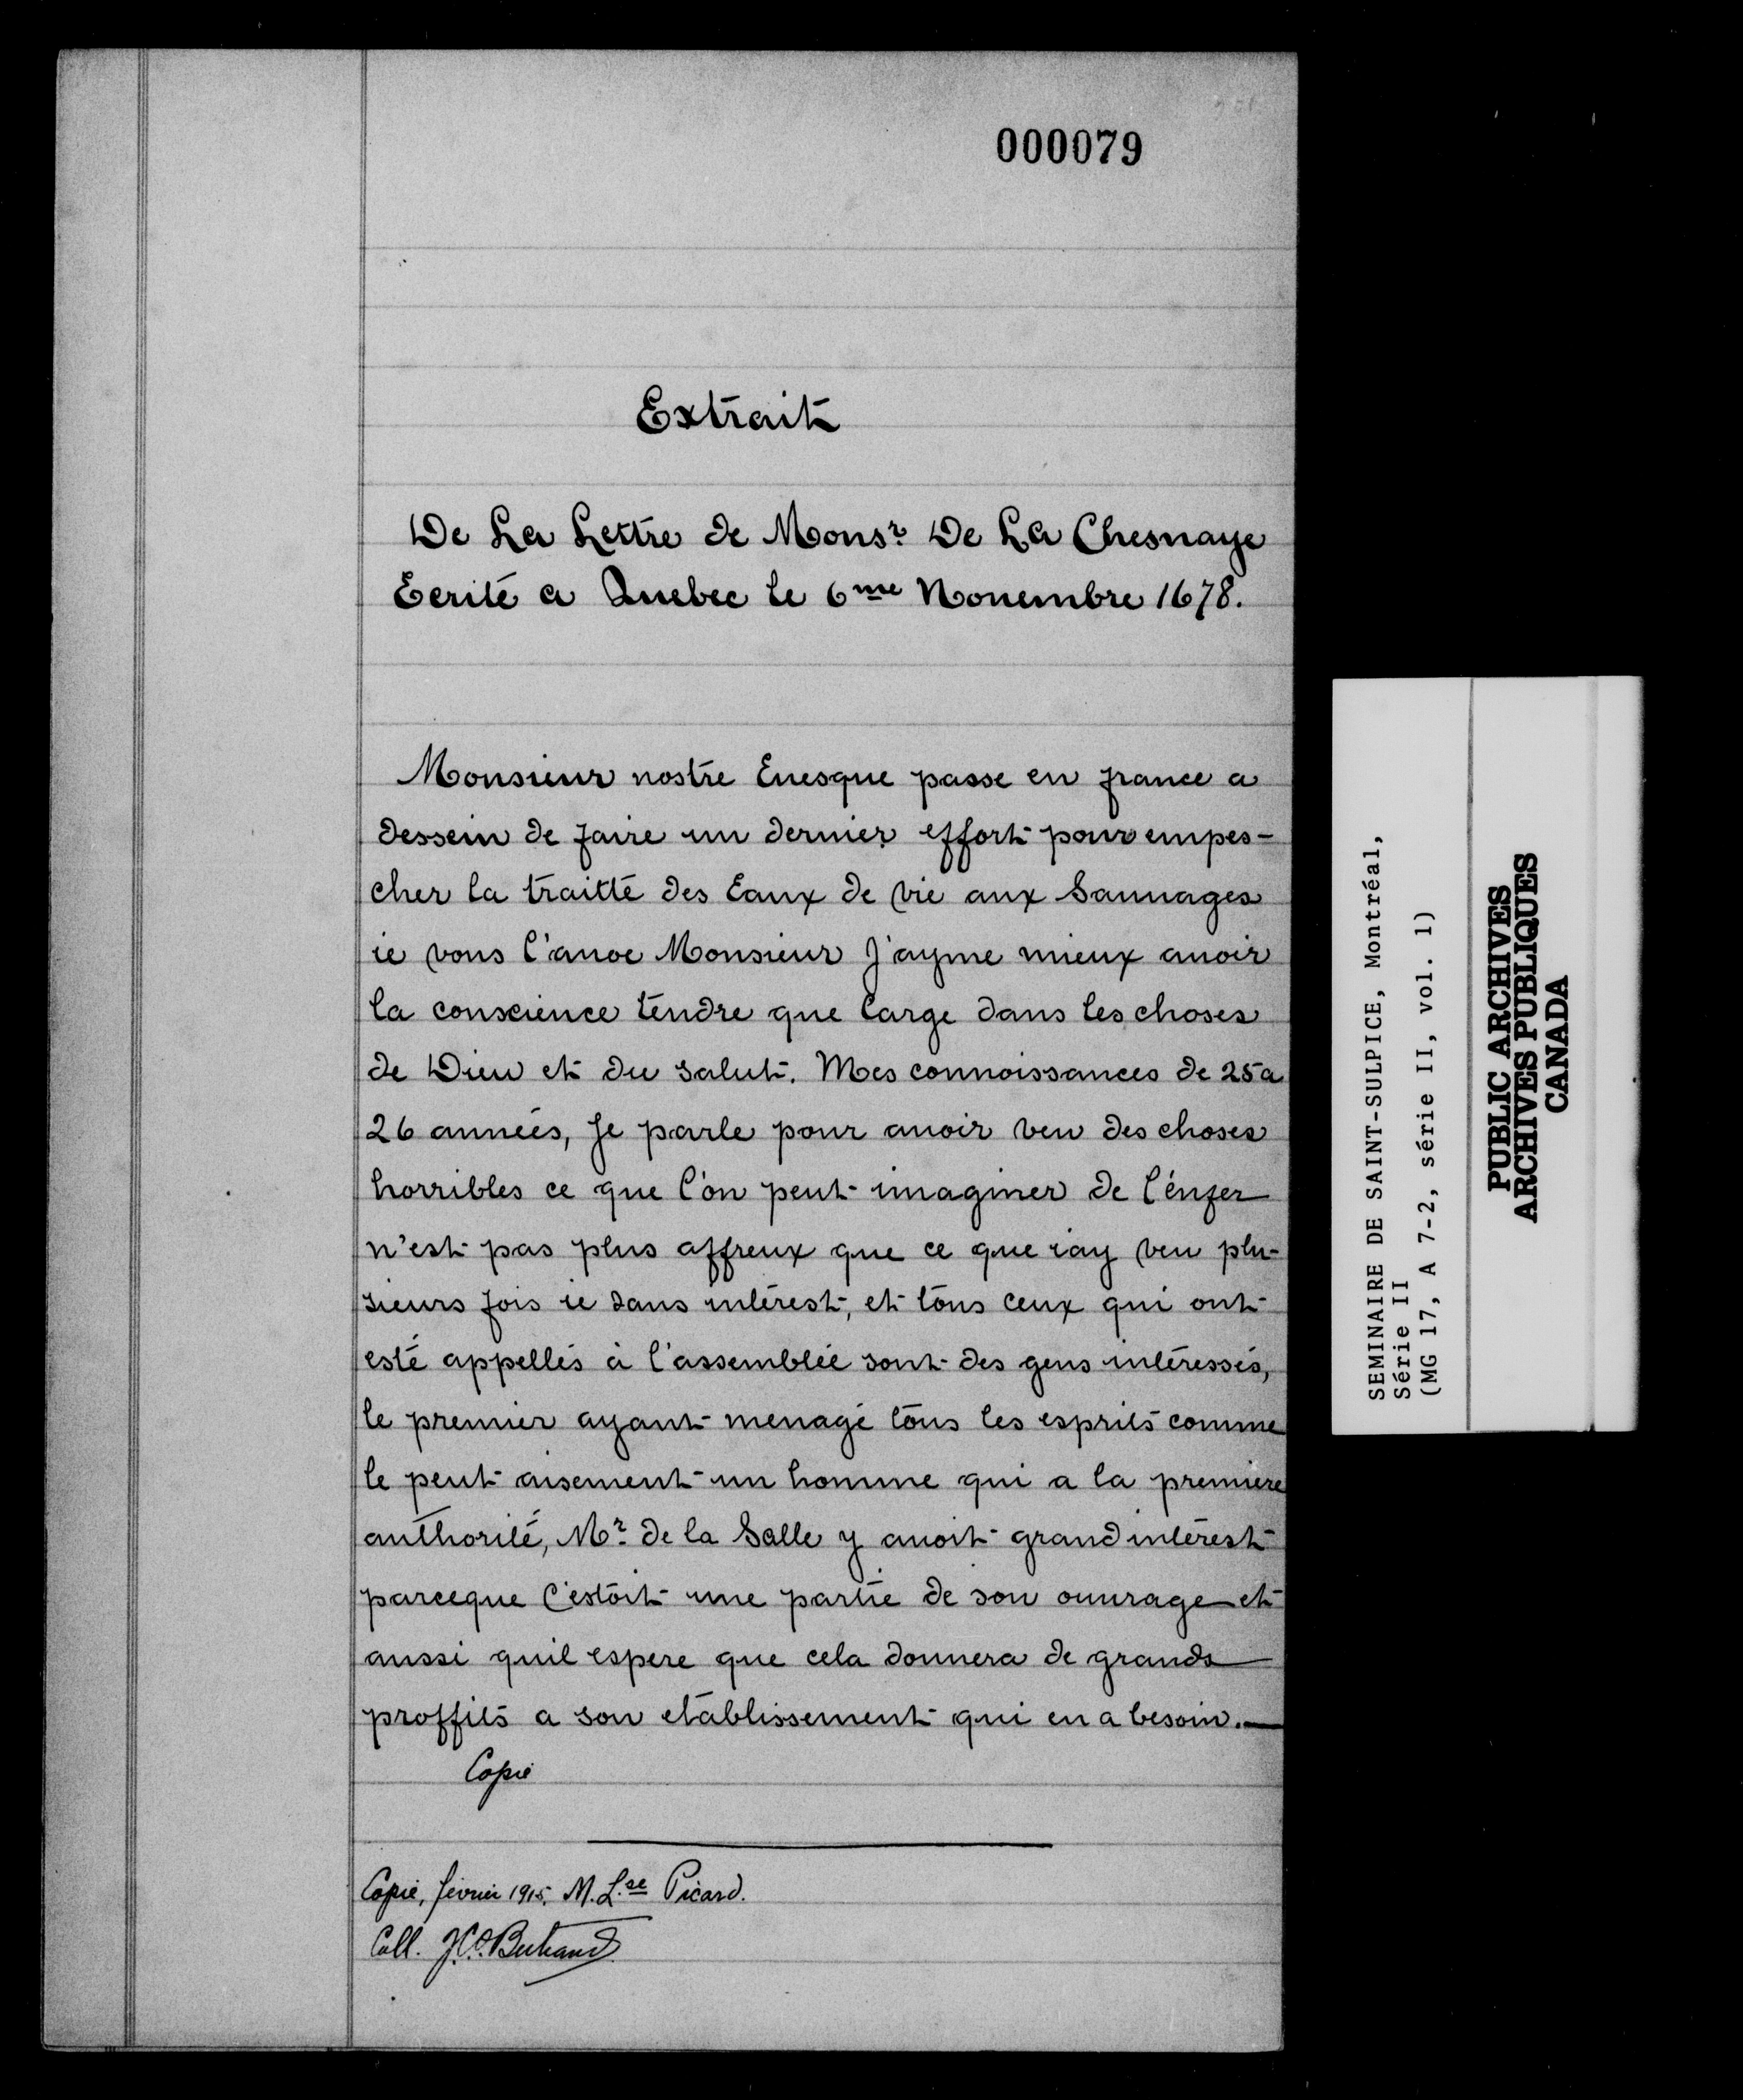 000079
Extrait
De La Lettre de Monsr De La Chesnaye
Ecrite a Quebec le 6me Nouembre 1678.
Monsieur nostre Euesque passe en france a
dessein de faire un dernier effort pour empes-
cher la traitte des Eaux de vie aux Sauuages
ie vous l'auoe Monsieur J'ayme mieux auoir
la conscience tendre que large dans les choses
de Dieu et du salut. Mes connoissances de 25 a
26 années, Je parle pour auoir veu des choses
horribles ce que l'on peut imaginer de l'énfer
n'est pas plus affreux que ce que iay veu plu-
sieurs fois ie sans intérest, et tous ceux qui ont
esté appellés à l'assemblée sont des gens intéressés,
le premier ayant menagé tous les esprits comme
le peut aisement un homme qui a la première
authorité, Mr de la Salle y auoit grand intérest
parceque C'estoit une partie de son ouurage et
aussi quil espere que cela donnera de grands
proffits a son etablissement qui en a besoin.—
Copie
Copie, février 1915. M. L.se Picard.
Coll. J.C.O. Bertrand
SEMINAIRE DE SAINT-SULPICE, Montréal,
Série II
(MG 17, A 7-2, série II, vol. 1)
PUBLIC ARCHIVES
ARCHIVES PUBLIQUES
CANADA